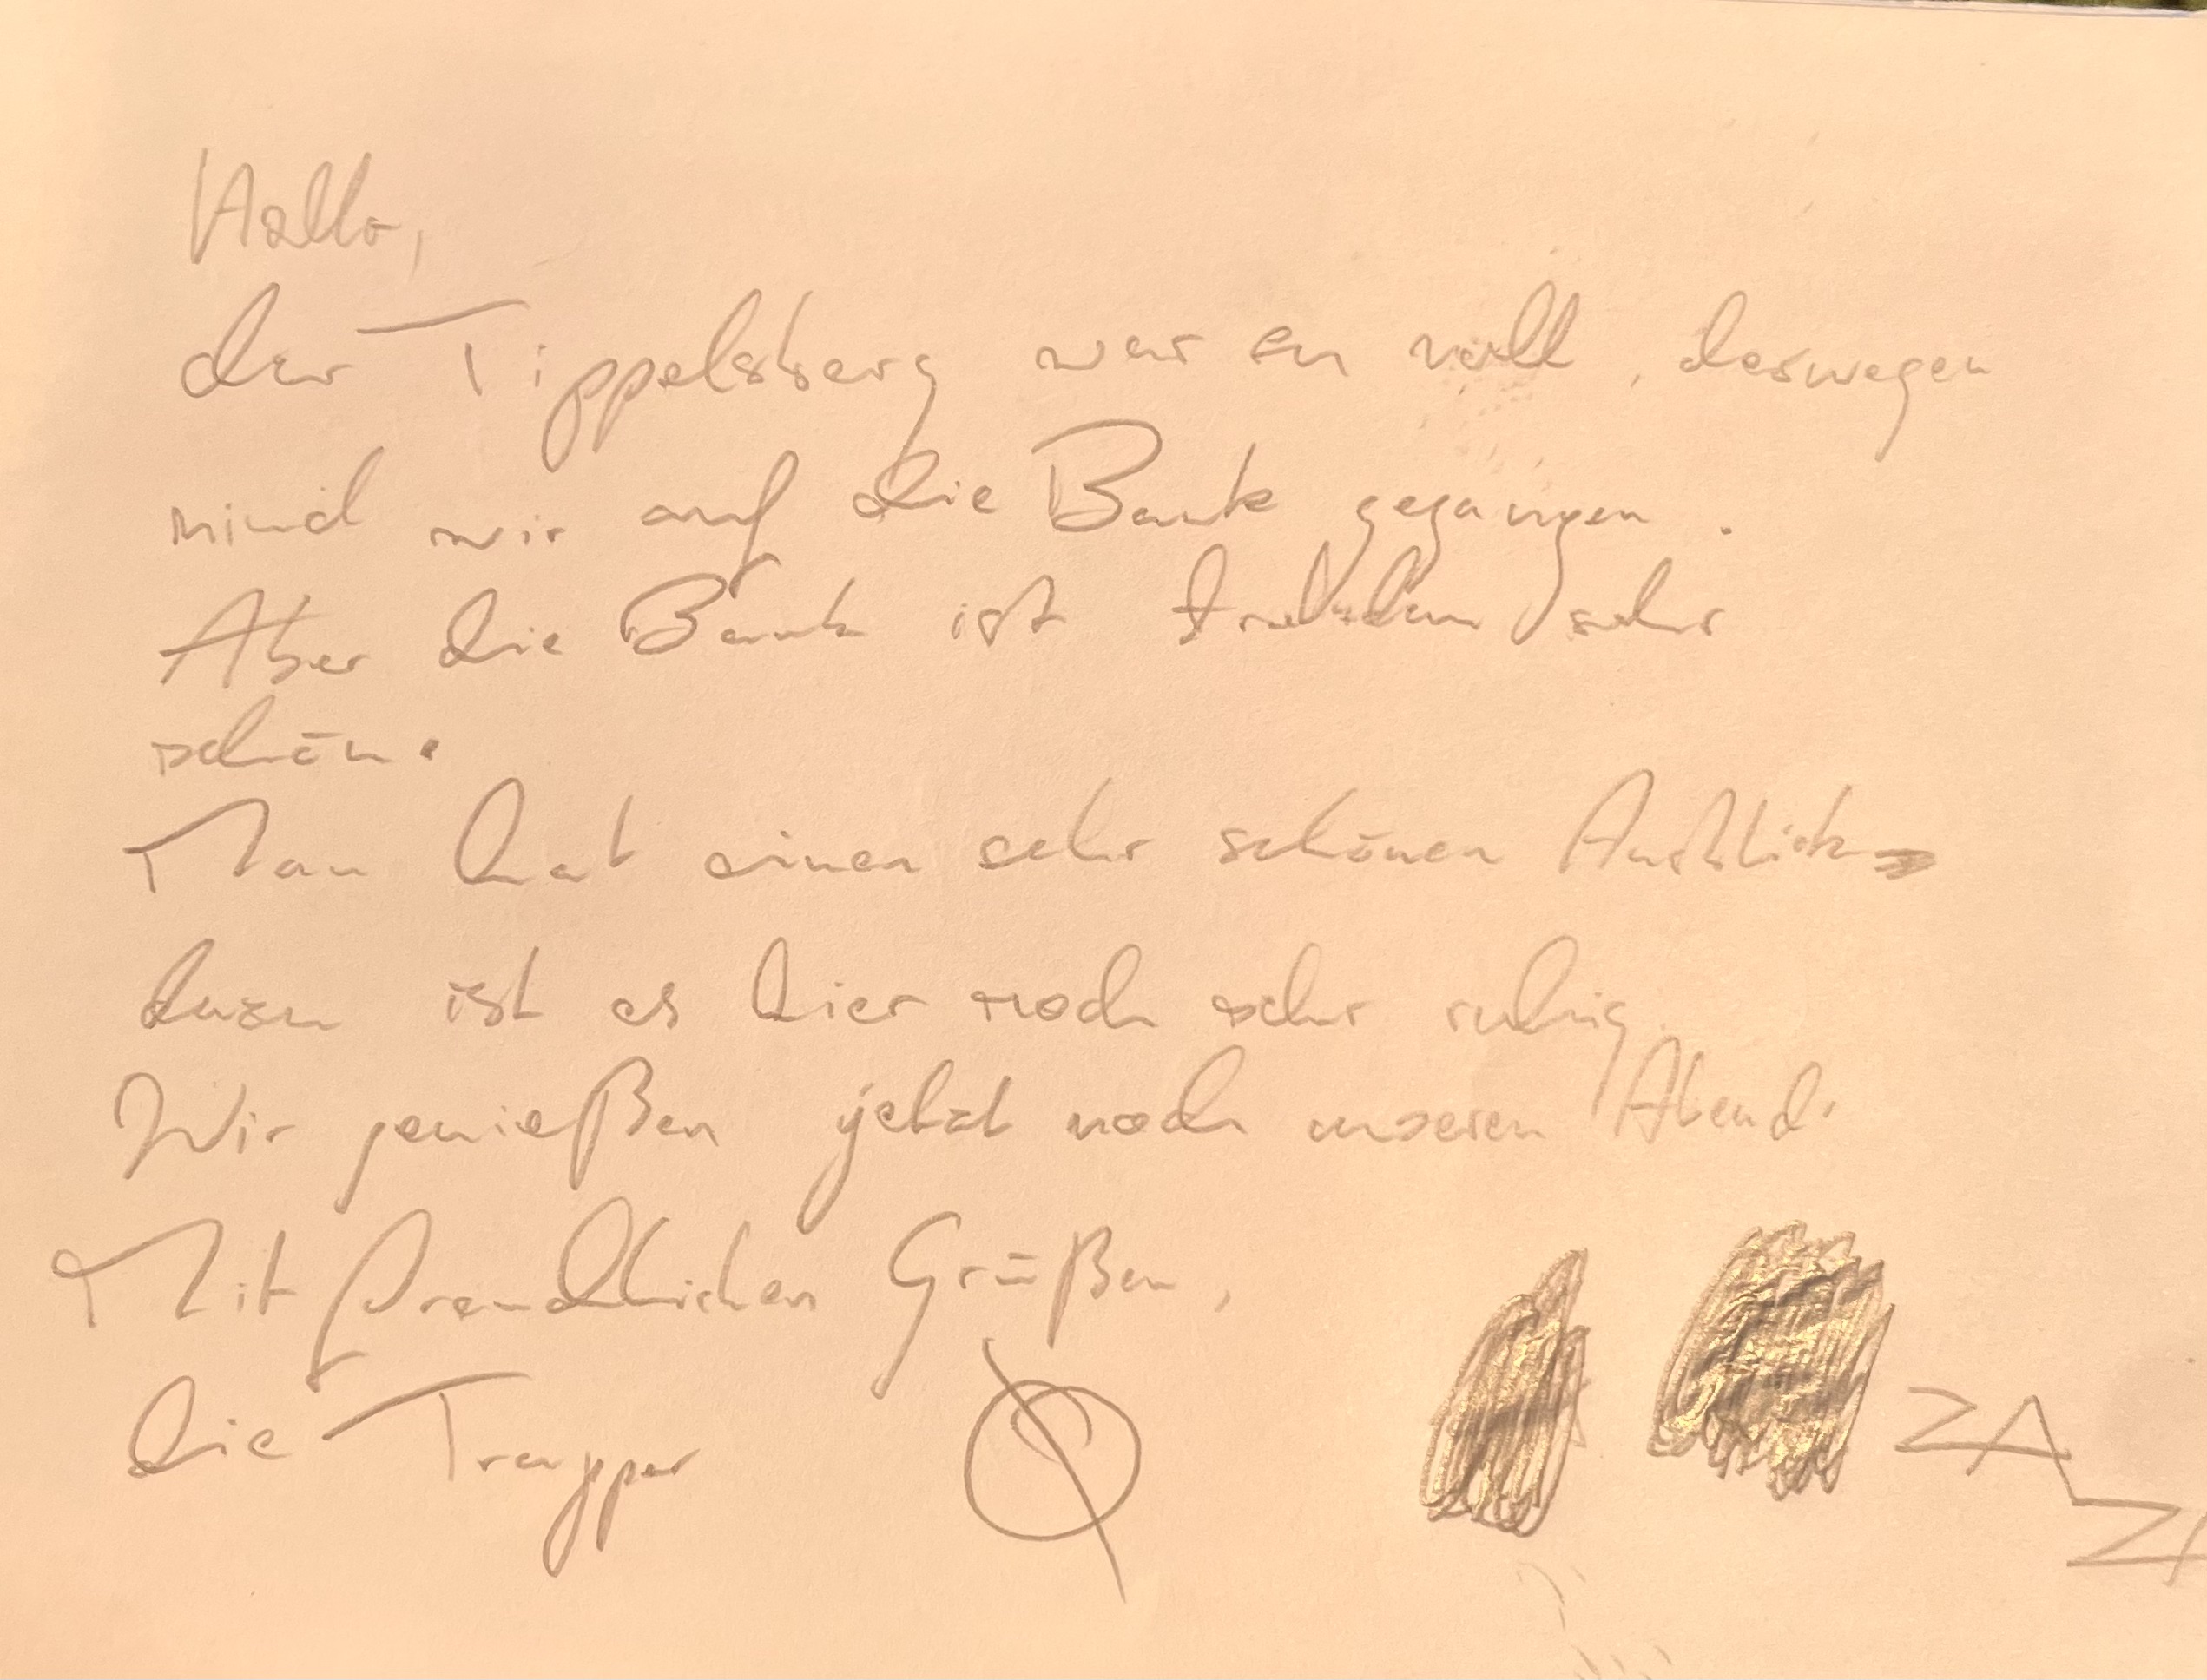 Hallo,
der Tippelsberg war zu voll, deswegen
sind wir auf die Bank gegangen.
Aber die Bank ist trotzdem sehr
schön.
Man hat einen sehr schönen Ausblick
dazu ist es hier noch sehr ruhig.
Wir genießen jetzt noch unseren Abend.
Mit freundlichen Grüßen,
die Trupper
ZA